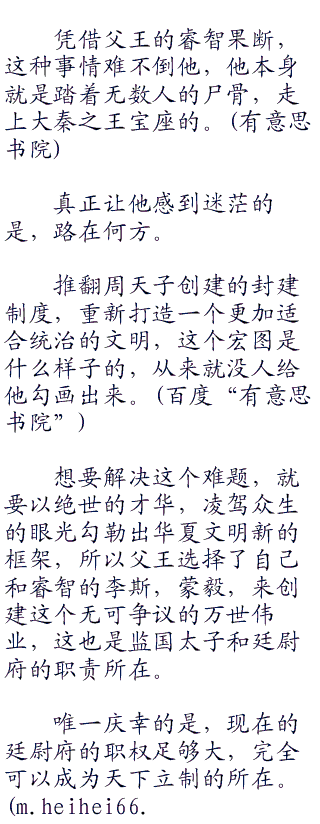 凭借父王的睿智果断，
这种事情难不倒他，他本身
就是踏着无数人的尸骨，走
上大秦之王宝座的。(有意思
书院)
真正让他感到迷茫的
是，路在何方。
推翻周天子创建的封建
制度，重新打造一个更加适
合统治的文明，这个宏图是
什么样子的，从来就没人给
他勾画出来。(百度“有意思
书院”)
想要解决这个难题，就
要以绝世的才华，凌驾众生
的眼光勾勒出华夏文明新的
框架，所以父王选择了自己
和睿智的李斯，蒙毅，来创
建这个无可争议的万世伟
业，这也是监国太子和廷尉
府的职责所在。
唯一庆幸的是，现在的
廷尉府的职权足够大，完全
可以成为天下立制的所在。
(m.heihei66.